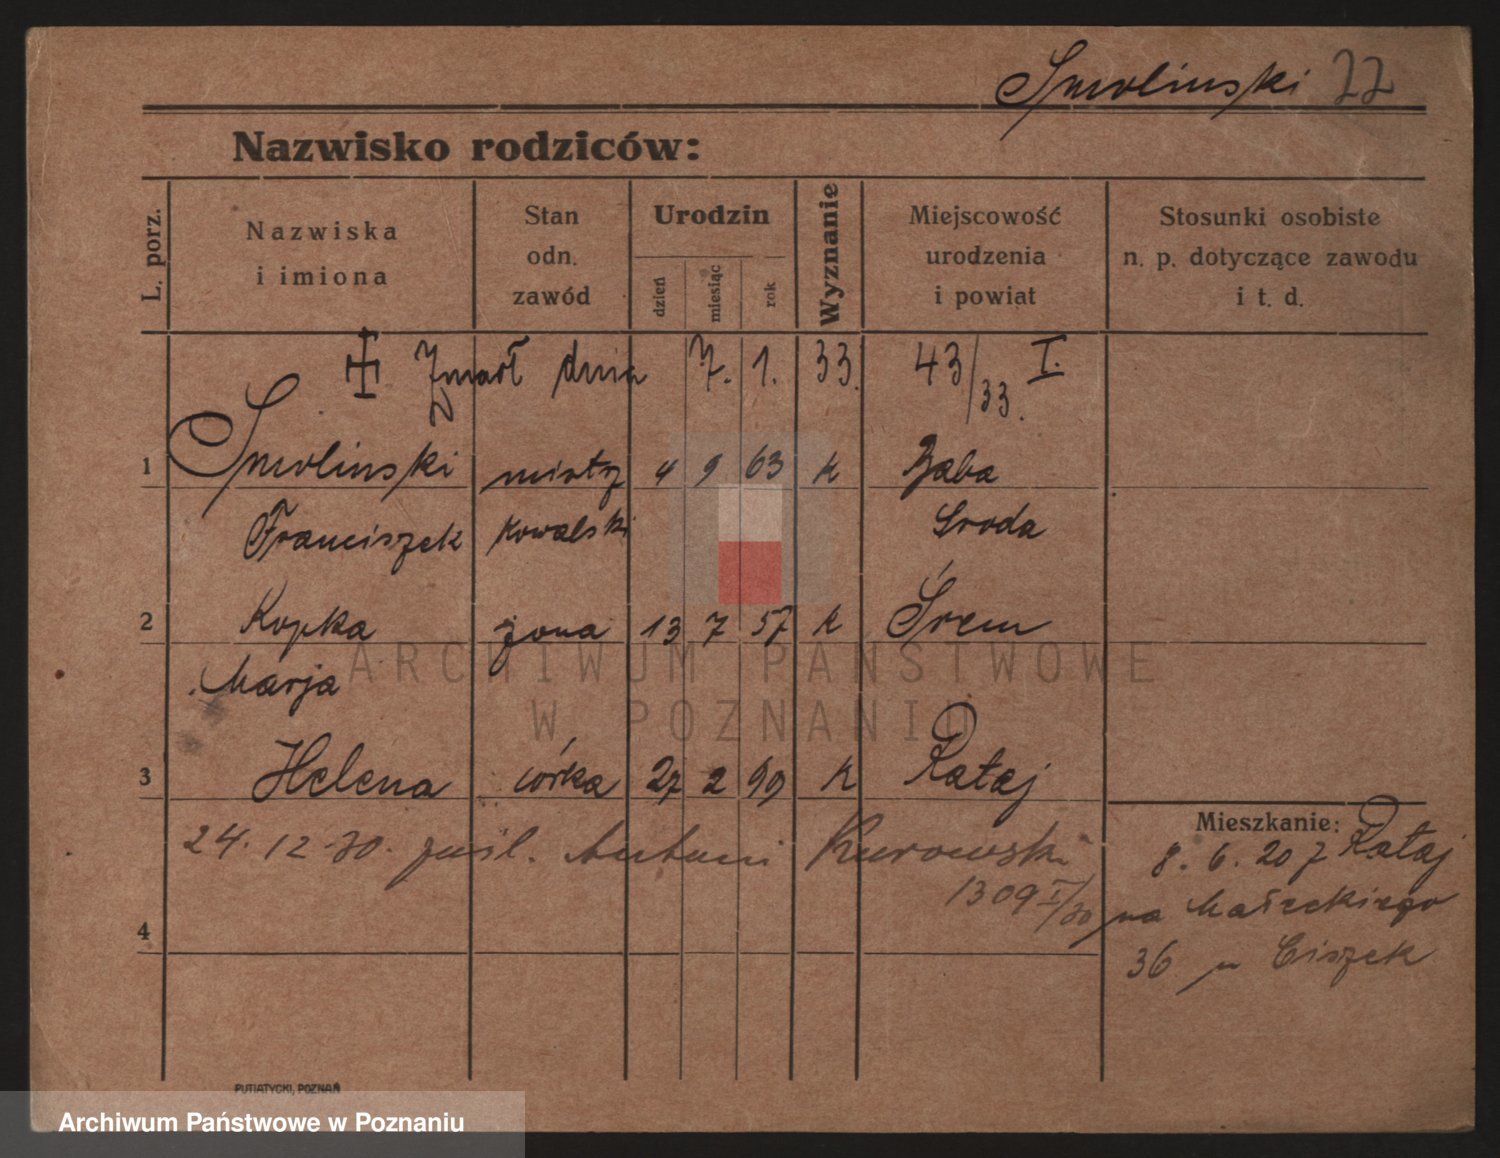 Smolinski 22
Nazwisko rodziców:
L. porz.
Nazwiska
i imiona
Stan
odn.
zawód
Urodzin
dzień
miesiąc
rok
Wyznanie
Miejscowość
urodzenia
i powiat
Stosunki osobiste
n. p. dotyczące zawodu
i t. d.
Zmarł dnia 7. 1. 33. 43/33. I.
1 Smolinski mistrz 4 9 63 k
Franciszek kowalski Sroda
2 Kopka żona 13 7 57 k Śrem
Marja
3 Helena córka 27 2 99 k Rataj
Mieszkanie:
24. 12. 30. Antoni Kurowski
1309 I/30
8. 6. 20 z Rataj
na Małeckiego
36 u Ciszek
4
PUTIATYCKI, POZNAŃ
ARCHIWUM PAŃSTWOWE
W POZNANIU
Archiwum Państwowe w Poznaniu